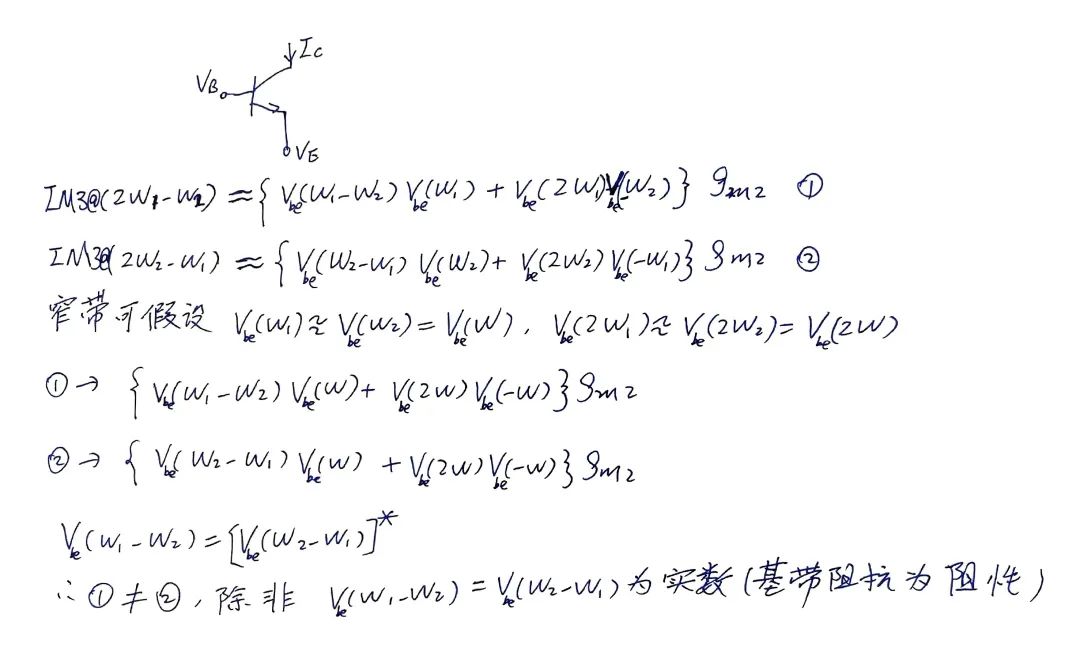 Ic
VB
VE
IM3@(2W1-W2) ≈ { Vbe(W1-W2) Vbe(W1) + Vbe(2W1) Vbe(-W2) } gm2 ①
IM3@(2W2-W1) ≈ { Vbe(W2-W1) Vbe(W2) + Vbe(2W2) Vbe(-W1) } gm2 ②
窄带可假设 Vbe(W1) ≈ Vbe(W2) = Vbe(W), Vbe(2W1) ≈ Vbe(2W2) = Vbe(2W)
① → { Vbe(W1-W2) Vbe(W) + Vbe(2W) Vbe(-W) } gm2
② → { Vbe(W2-W1) Vbe(W) + Vbe(2W) Vbe(-W) } gm2
Vbe(W1-W2) = [Vbe(W2-W1)]*
∴ ① ≠ ②, 除非 Vbe(W1-W2) = Vbe(W2-W1) 为实数(基带阻抗为阻性)